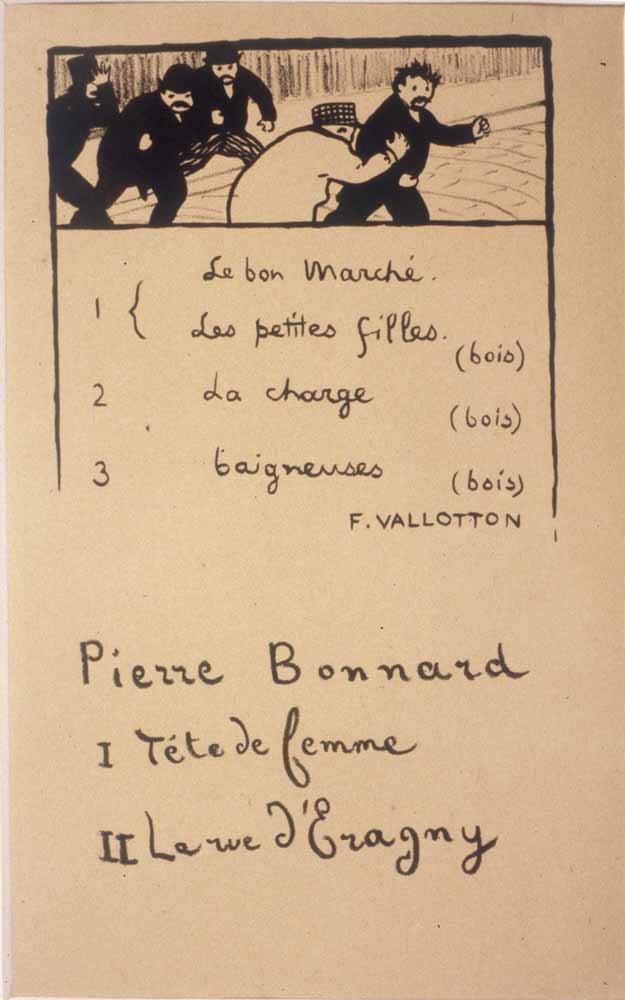 1 { Le bon Marché.
Les petites filles.
(bois)
2 La charge
(bois)
3 baigneuses (bois)
F. VALLOTTON
Pierre Bonnard
I Téte de femme
II La rue d'Eragny